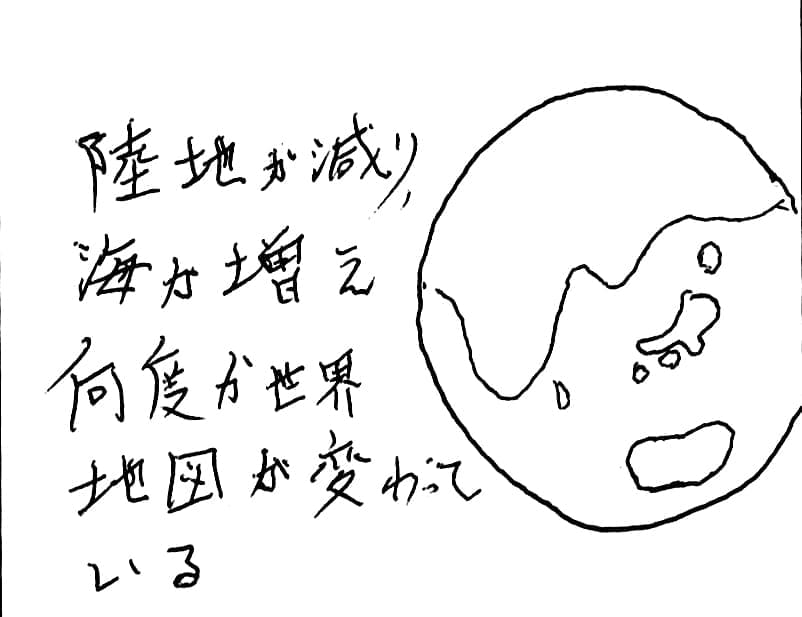 陸地が減り,
海が増え
何度か世界
地図が変わって
いる